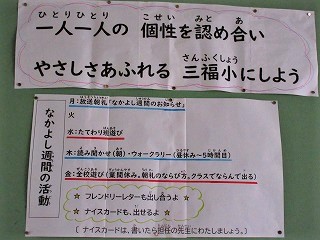 一人一人の 個性を認め合い
やさしさあふれる 三福小にしよう
なかよし週間の活動
月:放送朝礼「なかよし週間のお知らせ」
火
水:たてわり班遊び
木:読み聞かせ(朝)・ウォークラリー(昼休み~5時間目)
金:全校遊び(業間休み。朝礼のならび方。クラスでならんで出る)
☆ フレンドリーレターも出し合うよ
☆ ナイスカードも、出せるよ
[ナイスカードは、書いたら担任の先生にわたしましょう。]